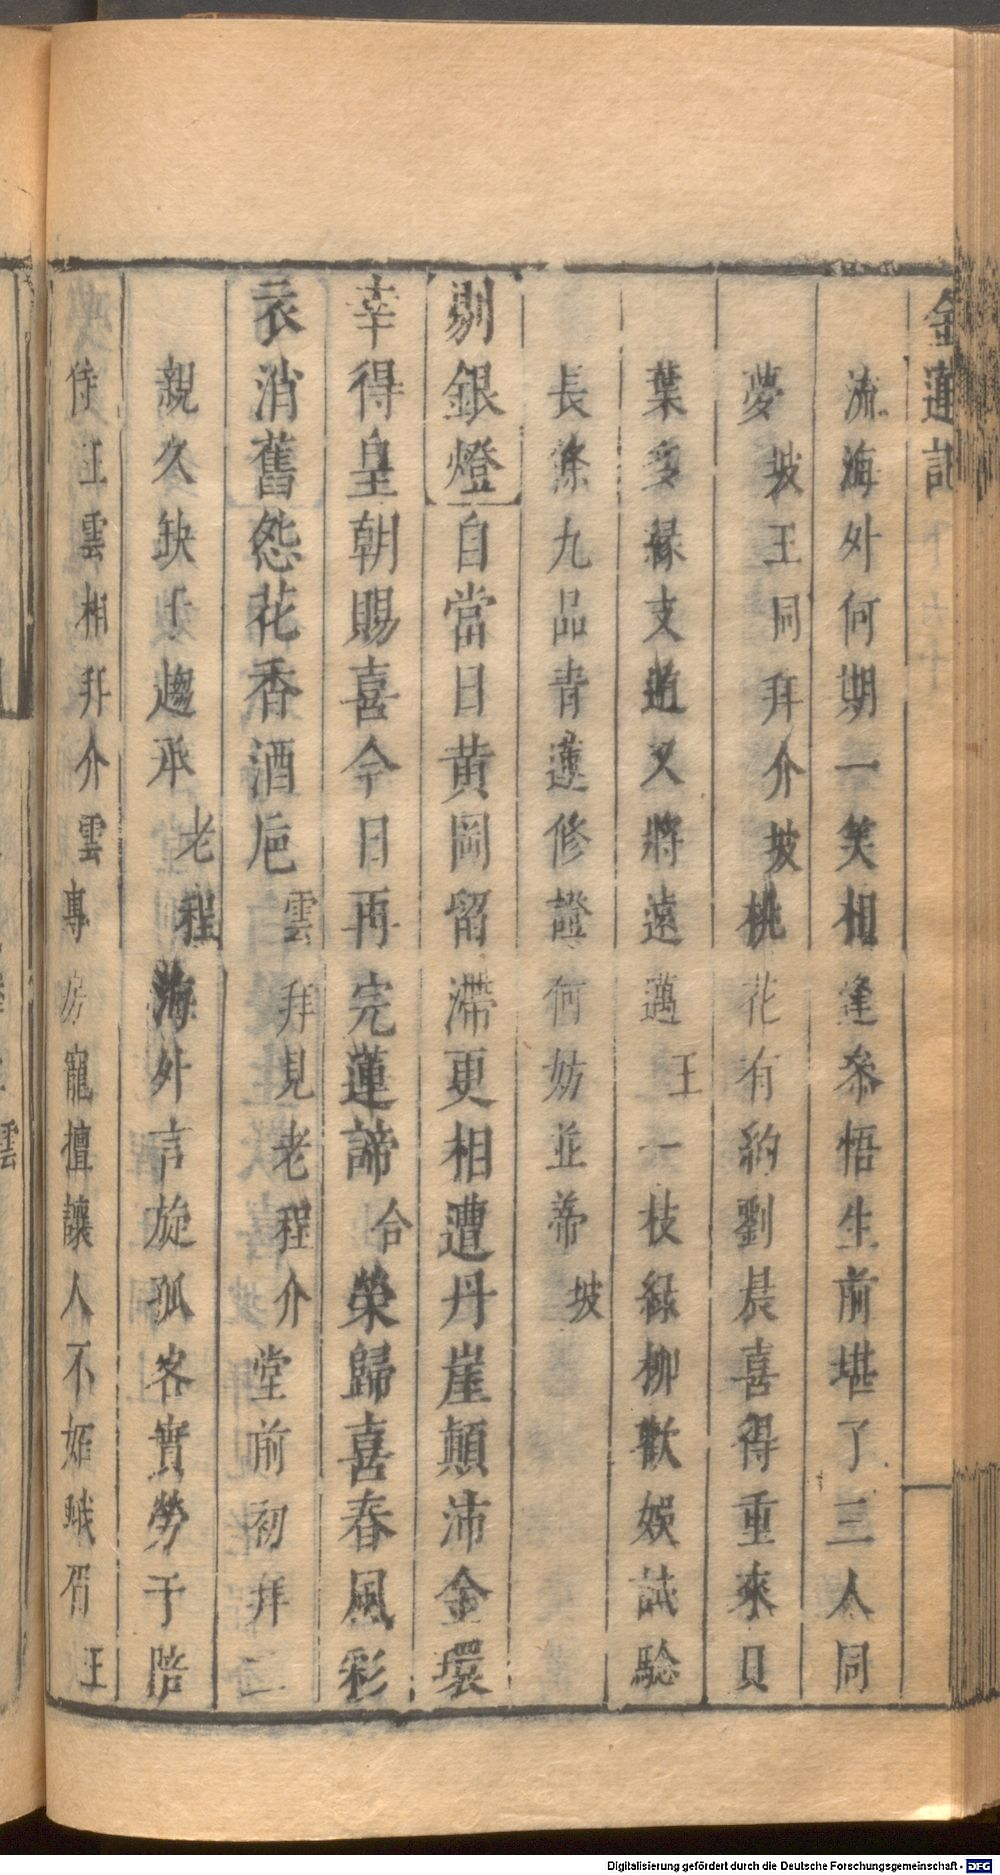 金蓮記
流海外何期一笑相逢叅悟生前堪了三人同
夢坡王同拜介坡桃花有約劉晨喜得重來貝
葉多緣支遁又將遠邁王一枝綠柳歡娛試驗
長條九品青蓮修證何妨並蒂坡
剔銀燈自當日黄岡留滯更相遭丹崖顛沛金環
幸得皇朝賜喜今日再完蓮諦合榮歸喜春風彩
衣消舊怨花香酒巵雲拜見老程介堂前初拜二
親久缺趨承老程海外言旋孤客實勞于陪
侍王雲相拜介雲專房寵擅讓人不妬蛾眉王
雲
Digitalisierung gefördert durch die Deutsche Forschungsgemeinschaft - DFG